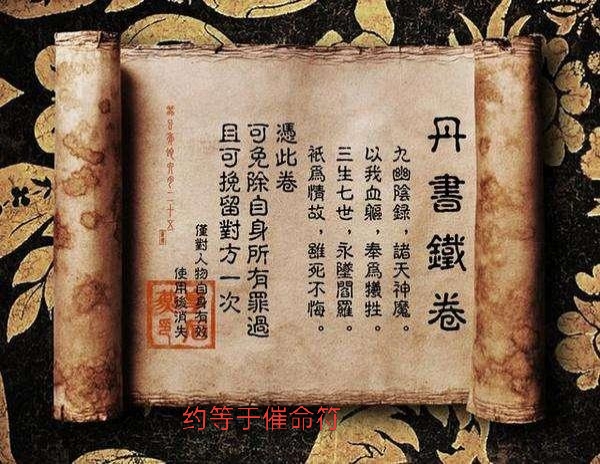 丹書鐵卷
九幽陰録，諸天神魔。
以我血軀，奉爲犧牲。
三生七世，永墜閻羅。
衹爲情故，雖死不悔。
憑此卷
可免除自身所有罪過
且可挽留對方一次
僅對人物自身有效
使用後消失
约等于催命符